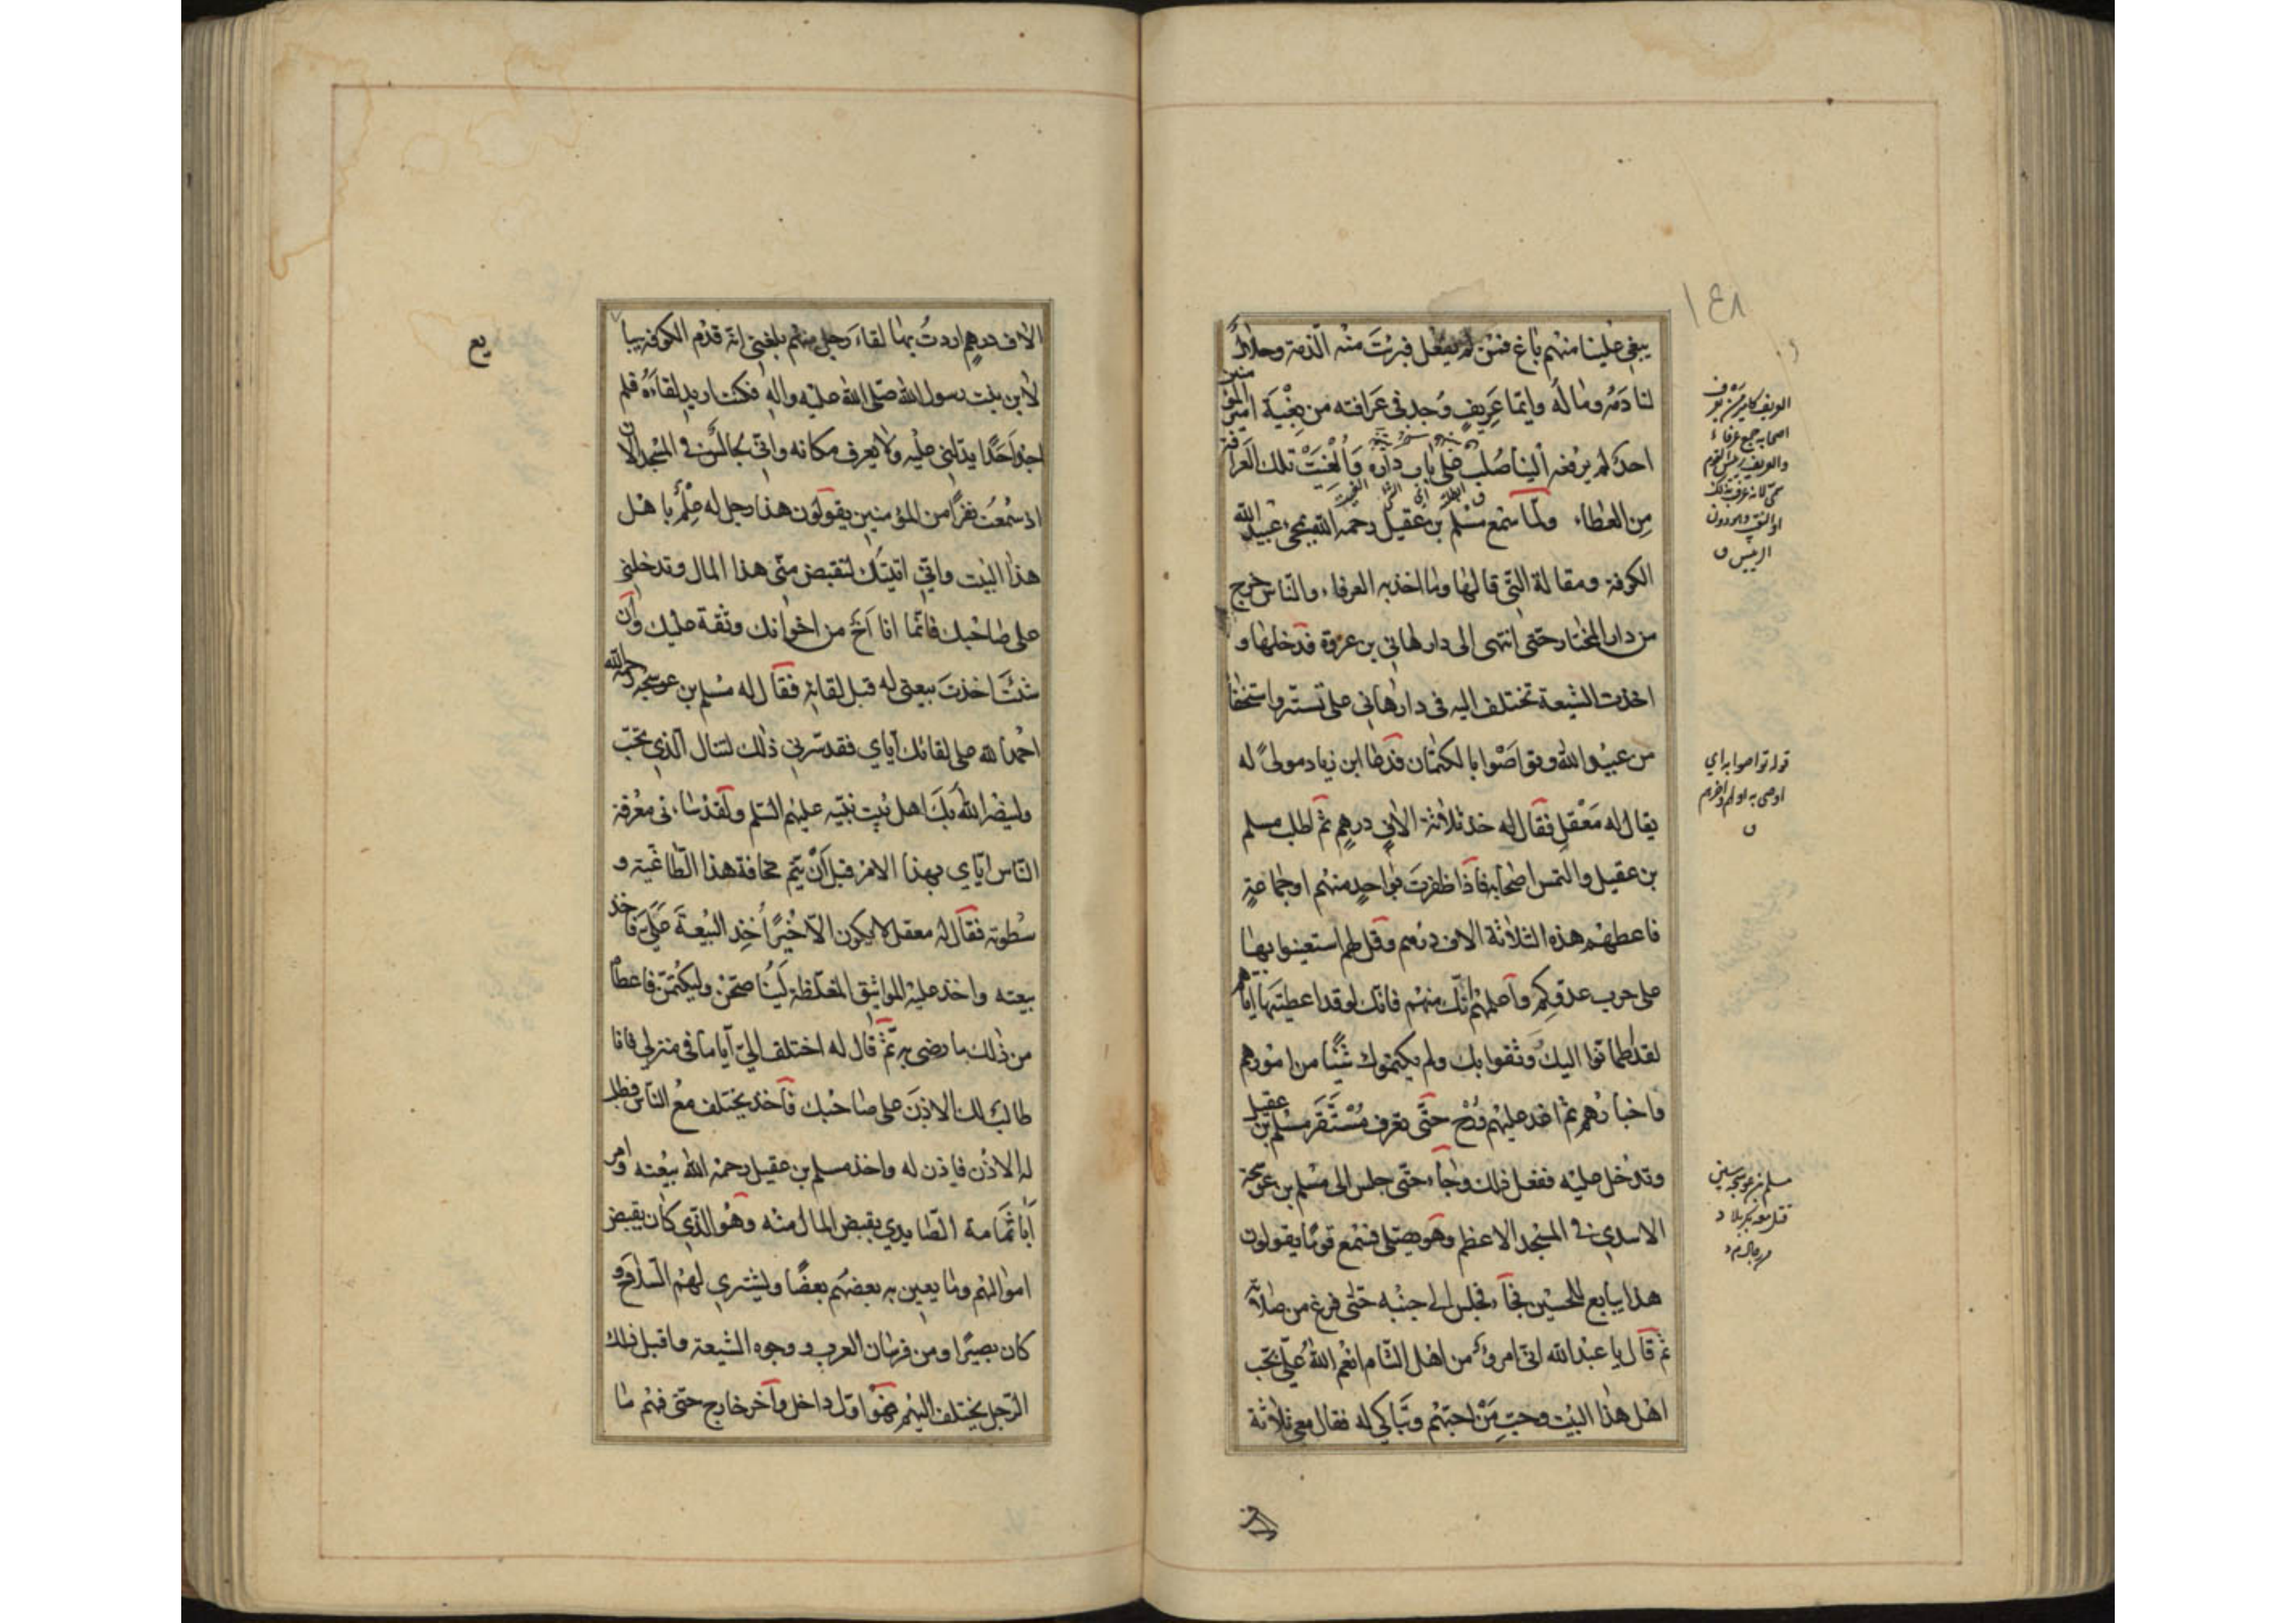 ١٤٨
يبغي علينا منهم باغ فمن لم يفعل فبرئت منه الذمة وحلال
لنا دَمُه وماله وايّما عَرِيفٍ وُجد في عَرافته من بِغْيَة امير المؤمنين
احدٌ لم يرفعه الينا صُلبَ على باب داره وَأُلْغيَتْ تلك العَرافة
مِن العطاء ولمّا سمع مسْلم بن عقيل رحمه الله بمجيء عبيد الله
الكوفة ومقالة التي قالها وما اخذ به العرفاء والنّاس خرج
من دار المختار حتّى انتهى الى دار هاني بن عروة فدخلها و
اخذت الشيعة تختلف اليه في دار هاني على تستّر واستخفاء
من عبيْد الله وتواصَوْا بالكتمان فدعا ابن زياد مولىً له
يقال له مَعْقِل فقال له خذ ثلاثة الافِ درهمٍ ثم اطلب مسلم
بن عقيل والتمس اصحابه فاذا ظفرت بواحدٍ منهم او جماعةٍ
فاعطهم هذه الثلاثة الاف درهم وقل لهم استعينوا بها
على حرب عدوّكم وأعلمهم انّك منهم فانك لو قد اعطيتها ايّاهم
لقد اطمأنّوا اليك وَثقوا بك ولم يكتموك شيئًا من امورهم
واخبارهم ثم اغد عليهم ورُحْ حتّى تعرف مُسْتقَر مسْلم بن عقيل
وتدخل عليه ففعل ذلك وجاء حتّى جلس الى مسْلم بن عوسجة
الاسدي في المسْجد الاعظم وهو يصلّي فسمع قومًا يقولون
هذا يبايع للحسين فجاء فجلس الى جنبه حتى فرغ من صلاته
ثم قال يا عبد الله انّي امرؤ من اهل الشام انعم الله عليّ بحبّ
اهل هذا البيْت وحبّ مَنْ احبّهم وتباكى له فقال معي ثلاثة
العريف كامير من يعرف
اصحابه جمع عرفاء
والعريف رئيس القوم
سمّي لانه عرف بذلك
او النقيب وهو دون
الرئيس ق
قوله تواصوا به اي
اوصى به اولهم اخرهم
ق
مسلم بن عوسجة
قتل معه بكربلا
الاف
الاف درهم اردتُ بها لقاءَ رجل منهم بلغني انّه قدم الكوفة يبا
لابن بنت رسول الله صلّى الله عليه واله فكنت اريد لقاءَهُ فلم
اجد احَدًا يدلّني عليْه ولا يعرف مكانه وانّي لجالسٌ في المسْجد الان
اذ سمعْت نفرًا من المؤمنين يقولون هذا رجل له علْم باهل
هذا البيْت وانّي اتيتك لتقبض منّي هذا المال وتدخلني
على صاحبك فانّما انا اخٌ من اخوانك وثقة عليك وان
شئت اخذت بيعتي له قبل لقائه فقال له مسلم بن عوسجة رحمه الله
احمد الله على لقائك ايّاي فقد سرّني ذلك لتنال الذي تحبّ
ولينصر الله بك اهل بيت نبيّه عليهم السّلم ولقد ساءني معرفة
النّاس ايّاي بهذا الامر قبل انْ يتم مخافة هذا الطاغية و
سطوته فقال له معقل لا يكون الّا خيْرًا خذ البيْعة عليّ فاخذ
بيعته واخذ عليه المواثيق المغلّظة ليُناصحنّ وليكتمنّ فاعطاه
من ذلك ما رضى به ثمّ قال له اختلف اليّ ايّامًا في منزلي فانا
طالبٌ لك الاذن على صاحبك فاخذ يختلف مع النّاس فطلب
له الاذْن فاذن له واخذ مسلم بن عقيل رحمه الله بيْعته وامر
أبا ثمامة الصّايدي بقبض المال منْه وهو الذي كان يقبض
اموالهم وما يعين به بعضهم بعضًا ويشتري لهم السّلاح و
كان بصيرًا ومن فرسان العرب ووجوه الشيعة واقبل ذلك
الرّجل يختلف اليهم فهو اوّل داخل وآخر خارج حتّى فهم ما
يع